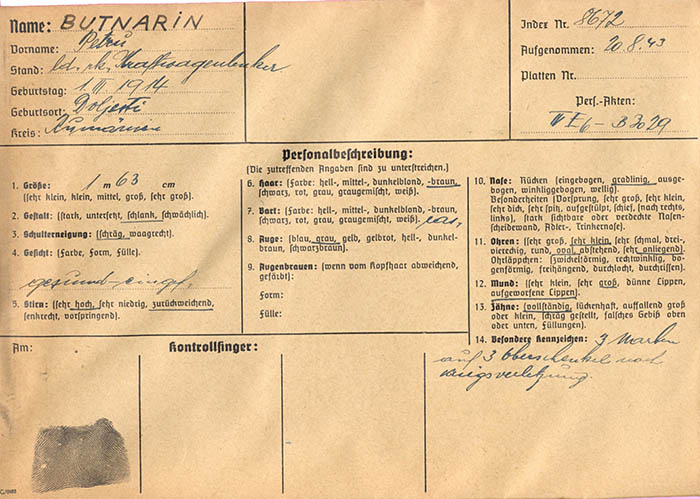 Name: BUTNARIN
Vorname: Petru
Stand: ld. rk. Kraftwagenlenker
Geburtstag: 1. III 1914
Geburtsort: Doljesti
Kreis: Rumänien
Index Nr. 8672
Aufgenommen: 20.8.43
Platten Nr.
Pers.-Akten:
IV E 6 – B 3029
Personalbeschreibung:
(Die zutreffenden Angaben sind zu unterstreichen.)
1. Größe: 1 m 63 cm
(sehr klein, klein, mittel, groß, sehr groß)
2. Gestalt: (stark, untersetzt, schlank, schwächlich).
3. Schulterneigung: (schräg, waagrecht).
4. Gesicht: (Farbe, Form, Fülle).
gesund –
5. Stirn: (sehr hoch, sehr niedrig, zurückweichend,
senkrecht, vorspringend).
6. Haar: (Farbe: hell-, mittel-, dunkelblond, -braun,
schwarz, rot, grau, graugemischt, weiß).
7. Bart: (Farbe: hell-, mittel-, dunkelblond, -braun,
schwarz, rot, grau, graugemischt, weiß). ras.
8. Auge: (blau, grau, gelb, gelbrot, hell-, dunkel-
braun, schwarzbraun).
9. Augenbrauen: (wenn vom Kopfhaar abweichend,
gefärbt):
Form:
Fülle:
10. Nase: Rücken (eingebogen, gradlinig, ausge-
bogen, winkliggebogen, wellig).
Besonderheiten (Vorsprung, sehr groß, sehr klein,
sehr dick, sehr spitz, aufgestülpt, schief, (nach rechts,
links), stark sichtbare oder verdeckte Nasen-
scheidewand, Adler-, Trinkernase).
11. Ohren: (sehr groß, sehr klein, sehr schmal, drei-
viereckig, rund, oval, abstehend, sehr anliegend).
Ohrläppchen: (zwickelförmig, rechtwinklig, bo-
genförmig, freihängend, durchlocht, durchrissen).
12. Mund: (sehr klein, sehr groß, dünne Lippen,
aufgeworfene Lippen).
13. Zähne: (vollständig, lückenhaft, auffallend groß
oder klein, schräg gestellt, falsches Gebiß oben
oder unten, Füllungen).
14. Besondere Kennzeichen: 3 Narben
auf Oberschenkel nach
Kriegsverletzung.
Am:
Kontrollfinger: